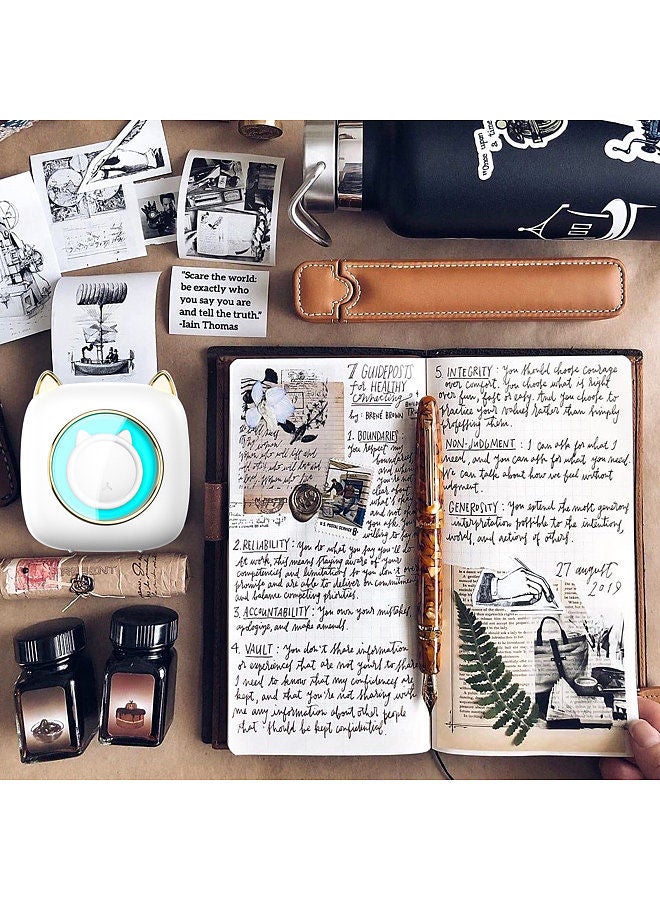 "Once upon
a time
"Scare the world:
be exactly who
you say you are
and tell the truth."
-Iain Thomas
7 GUIDEPOSTS
for HEALTHY
connecting
by: BRENÉ BROWN
1. BOUNDARIES:
You respect my
boundaries
and when
you're not
clear about
what's
and not
you ask
willing to
U.S. POSTAL SERVICE
2. RELIABILITY: You do what you say you'll do.
At work, this means staying aware of your
competencies and limitations so you don't over
promise and are able to deliver on commitments
and balance competing priorities.
3. ACCOUNTABILITY: You own your mistakes,
apologize, and make amends.
4. VAULT: You don't share information
or experiences that are not yours to share
I need to know that my confidences are
kept, and that you're not sharing with
me any information about other people
that should be kept confidential.
5. INTEGRITY: You should choose courage
over comfort. You choose what is right
over fun, fast or easy. And you choose to
practice your values rather than simply
professing them.
NON-JUDGMENT: I can ask for what I
need, and you can ask for what you need.
We can talk about how we feel without
judgment.
GENEROSITY: You extend the most generous
interpretation possible to the intentions,
words, and actions of others.
27 august
2019